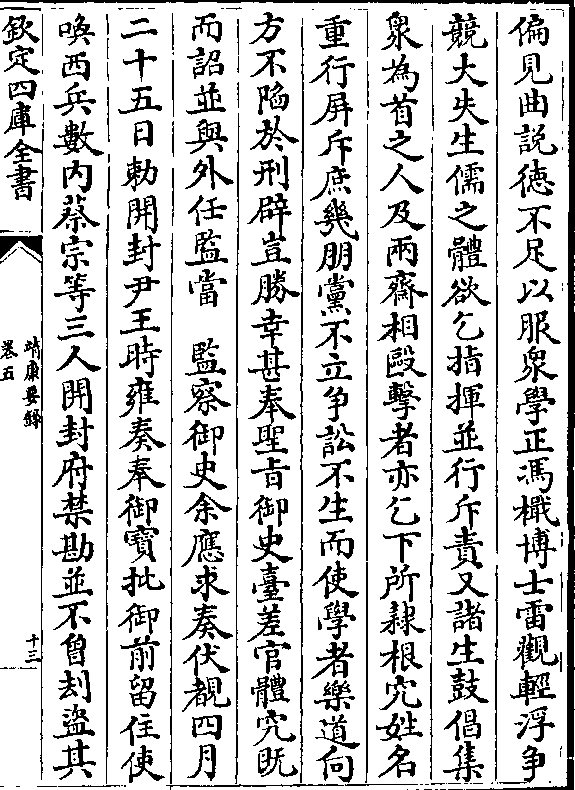 偏見曲説徳不足以服衆學正馮檝博士雷觀輕浮争
競大失生儒之體欲乞指揮並行斥責又諸生鼓倡集
衆為首之人及兩齋相毆擊者亦乞下所隷根究姓名
重行屏斥庶幾朋黨不立争訟不生而使學者樂道向
方不陷於刑辟豈勝幸甚奉聖旨御史臺差官體究既
而詔並與外任監當　監察御史余應求奏伏覩四月
二十五日勅開封尹王時雍奏奉御寶批御前留住使
喚西兵數内蔡宗等三人開封府禁勘並不曾刦盜其
欽定四庫全書
靖康要錄
卷五
十三